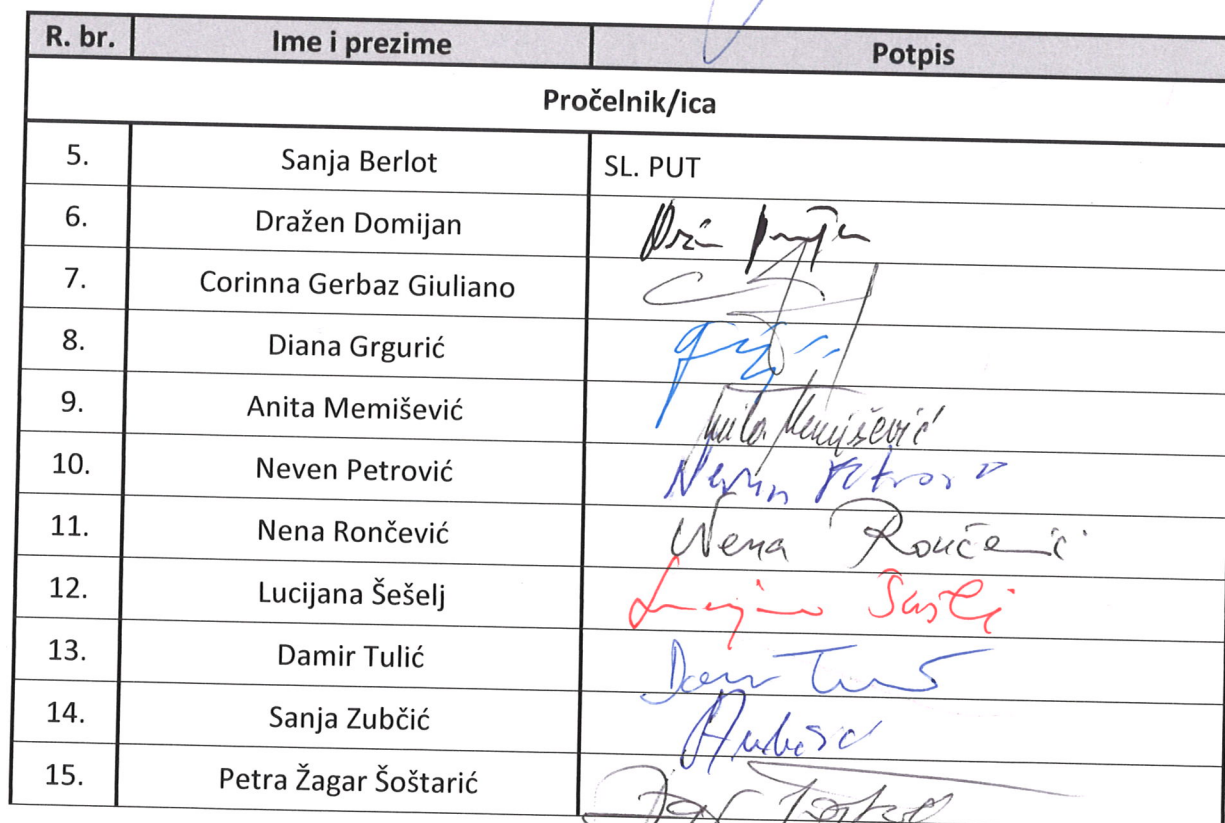 R. br. Ime i prezime Potpis
Pročelnik/ica
5. Sanja Berlot SL. PUT
6. Dražen Domijan
7. Corinna Gerbaz Giuliano
8. Diana Grgurić
9. Anita Memišević Anita Memišević
10. Neven Petrović Neven Petrović
11. Nena Rončević Nena Rončević
12. Lucijana Šešelj
13. Damir Tulić
14. Sanja Zubčić
15. Petra Žagar Šoštarić